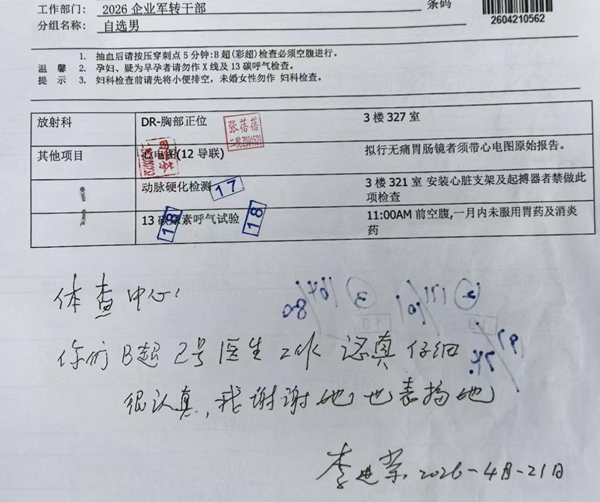 工作部门: 2026 企业军转干部 条码
分组名称: 自选男 2604210562
1. 抽血后请按压穿刺点 5 分钟:B 超(彩超)检查必须空腹进行。
温 馨 2. 孕妇、疑为早孕者请勿作 X 线及 13 碳呼气检查。
提 示 3. 妇科检查前请先将小便排空，未婚女性勿作 妇科检查。
放射科 DR-胸部正位 3 楼 327 室
张蓓蓓
其他项目 心电图(12 导联) 拟行无痛胃肠镜者须带心电图原始报告。
动脉硬化检测 17 3 楼 321 室 安装心脏支架及起搏器者禁做此
项检查
13 碳尿素呼气试验 18 18 11:00AM 前空腹,一月内未服用胃药及消炎
药
体查中心:
你们B超2号医生工作认真仔细
很认真,我谢谢她也表扬她
李进荣 2026-4月-21日